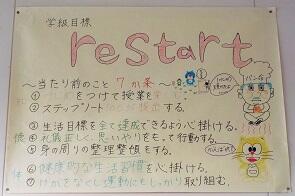 学級目標
restart
～当たり前のこと 7か条～
① をつけて授業を
② ステップノート する。
③ 生活目標を全て達成できるよう心掛ける。
徳 ④ 礼儀正しく、思いやりをもって行動する。
⑤ 身の周りの整理整頓をする。
体 ⑥ 健康的な生活習慣を心掛ける。
⑦ けがをなくし運動にもしっかり取り組む。